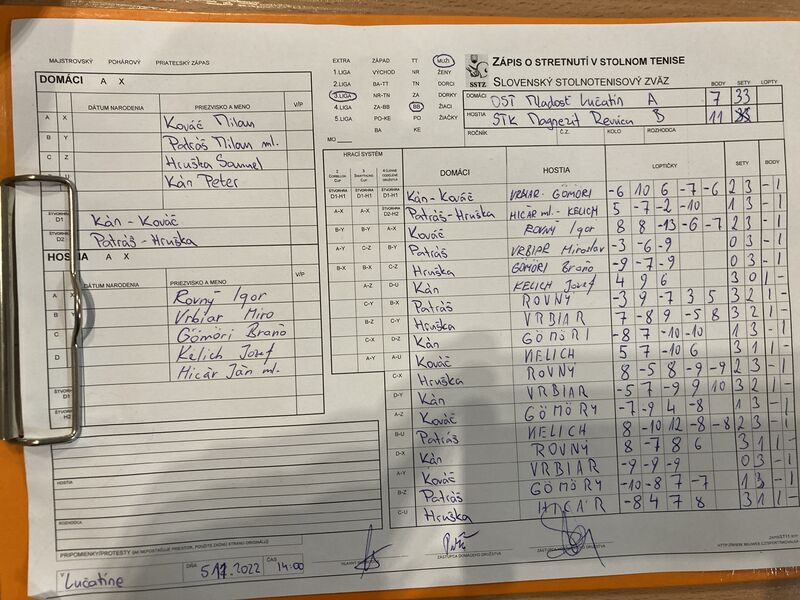 MAJSTROVSKÝ POHÁROVÝ PRIATEĽSKÝ ZÁPAS
DOMÁCI A X
DÁTUM NARODENIA PRIEZVISKO A MENO V/P
A X Kováč Milan
B Y Patráš Milan ml.
C Z Hruška Samuel
U Kán Peter
ŠTVORHRA D1 Kán - Kováč
ŠTVORHRA D2 Patráš - Hruška
HOSTIA A X
DÁTUM NARODENIA PRIEZVISKO A MENO V/P
A Rovný Igor
B Vrbiar Miro
C Gömöri Braňo
D Kelich Jozef
Hicár Ján ml.
ŠTVORHRA D1
ŠTVORHRA H2
HOSTIA
ROZHODCA
PRIPOMIENKY/PROTESTY
V Lučatíne DŇA 5.11.2022 ČAS 14:00
EXTRA ZÁPAD TT MUŽI
1.LIGA VÝCHOD NR ŽENY
2.LIGA BA-TT TN DORCI
3.LIGA NR-TN ZA DORKY
4.LIGA ZA-BB BB ŽIACI
5.LIGA PO-KE PO ŽIAČKY
BA KE
MO
SSTZ
ZÁPIS O STRETNUTÍ V STOLNOM TENISE
SLOVENSKÝ STOLNOTENISOVÝ ZVÄZ
BODY SETY LOPTY
DOMÁCI OŠT Mladosť Lučatín A 7 33
HOSTIA STK Magnezit Revúca B 11
ROČNÍK Č.Z. KOLO ROZHODCA
HRACÍ SYSTÉM DOMÁCI HOSTIA LOPTIČKY SETY BODY
ŠTVORHRA D1-H1 ŠTVORHRA D1-H1 ŠTVORHRA D1-H1 Kán - Kováč VRBIAR - GÖMÖRI -6 10 6 -7 -6 2 3 - 1
A-X A-X ŠTVORHRA D2-H2 Patráš - Hruška HICÁR ml. - KELICH 5 -7 -2 -10 1 3 - 1
B-Y B-Y A-X Kováč ROVNÝ Igor 8 8 -13 -6 -7 2 3 - 1
A-Y C-Z B-Y Patráš VRBIAR Miroslav -3 -6 -9 0 3 - 1
B-X B-X C-Z Hruška GÖMÖRI Braňo -9 -7 -9 0 3 - 1
A-Z D-U Kán KELICH Jozef 4 9 6 3 0 1 -
C-Y B-X Patráš ROVNÝ -3 9 -7 3 5 3 2 1 -
B-Z C-Y Hruška VRBIAR 7 -8 9 -5 8 3 2 1 -
C-X D-Z Kán GÖMÖRI -8 7 -10 -10 1 3 - 1
A-Y A-U Kováč KELICH 5 7 -10 6 3 1 1 -
C-X Hruška ROVNÝ 8 -5 8 -9 -9 2 3 - 1
D-Y Kán VRBIAR -5 7 -9 9 10 3 2 1 -
A-Z Kováč GÖMÖRY -7 -9 4 -8 1 3 - 1
B-U Patráš KELICH 8 -10 12 -8 -8 2 3 - 1
D-X Kán ROVNÝ 8 -7 8 6 3 1 1 -
A-Y Kováč VRBIAR -9 -9 -9 0 3 - 1
B-Z Patráš GÖMÖRY -10 -8 7 -7 1 3 - 1
C-U Hruška HICÁR -8 4 7 8 3 1 1 -
ZÁSTUPCA DOMÁCEHO DRUŽSTVA